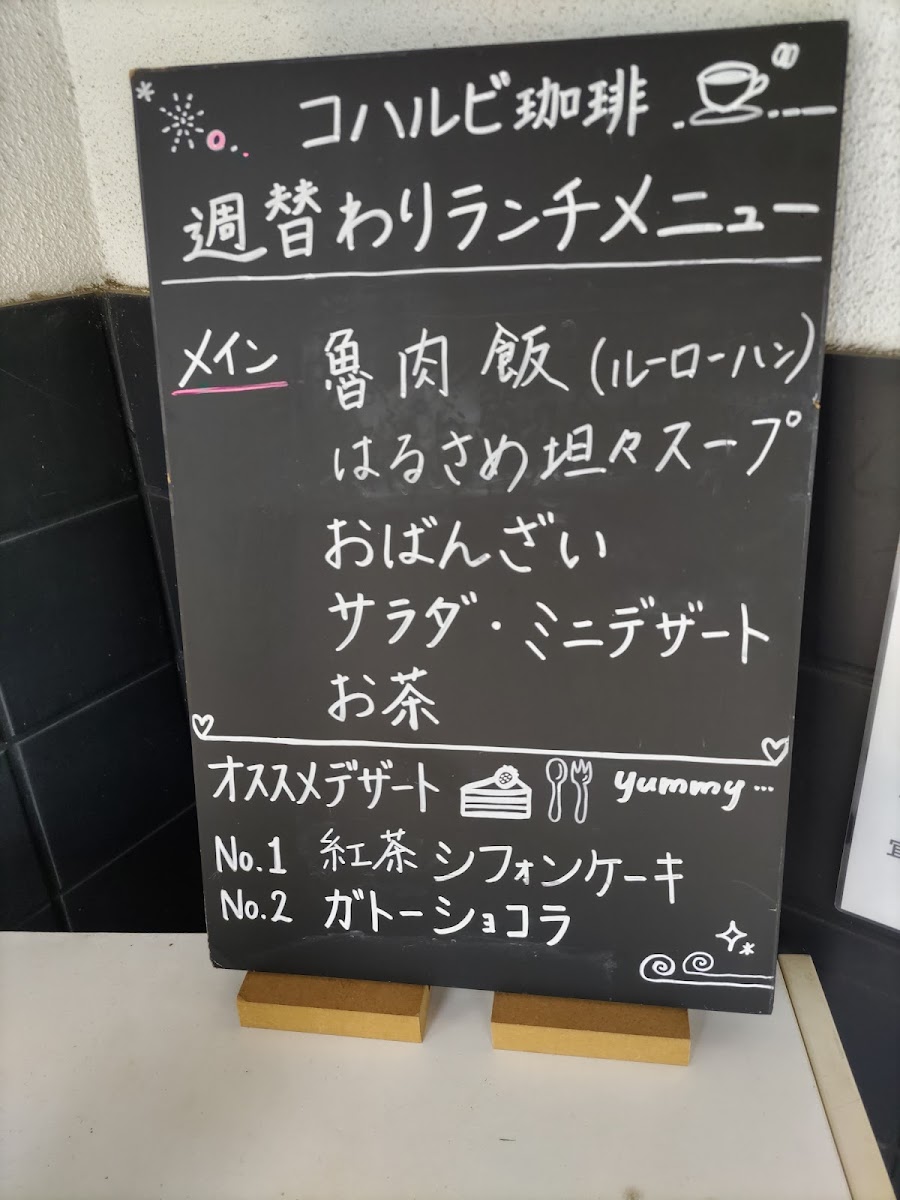 コハルビ珈琲
週替わりランチメニュー
メイン 魯肉飯(ルーローハン)
はるさめ坦々スープ
おばんざい
サラダ・ミニデザート
お茶
オススメデザート yummy…
No.1 紅茶シフォンケーキ
No.2 ガトーショコラ